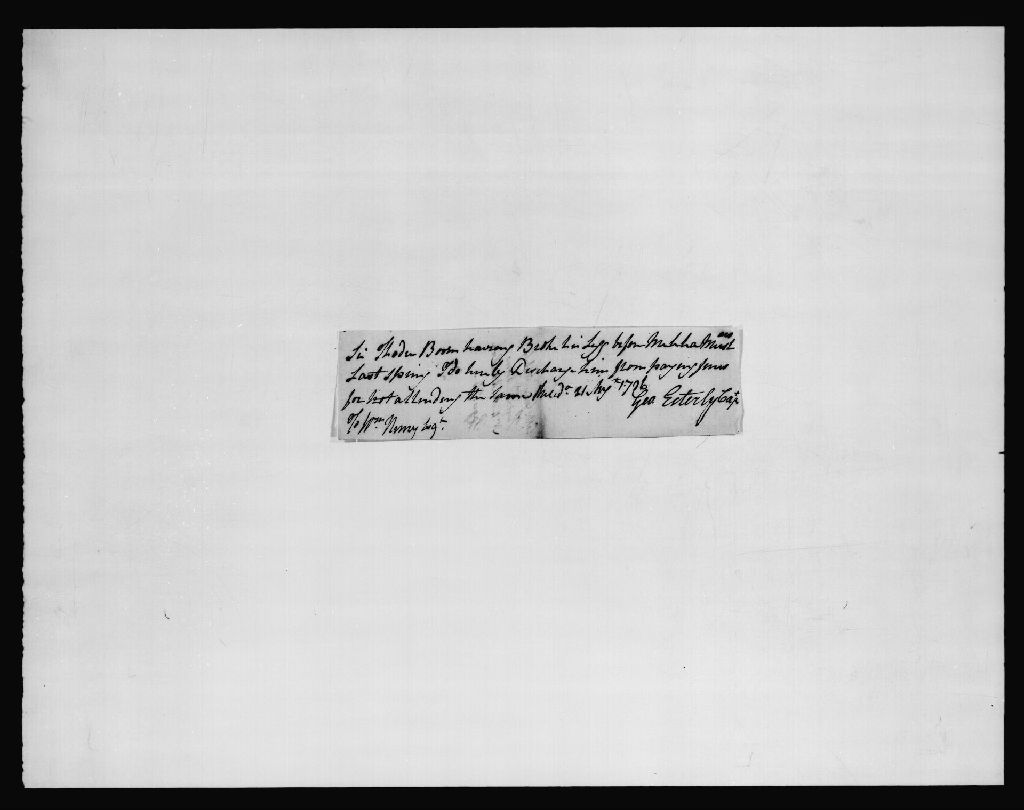 Sir Thodr Boom having Broke his Legs before Malitia must
Last Spring I do hereby Discharge him from paying fines
for not attending the same Philada 21 Augt
Geo Esterly Capt
To Wm Esqr.